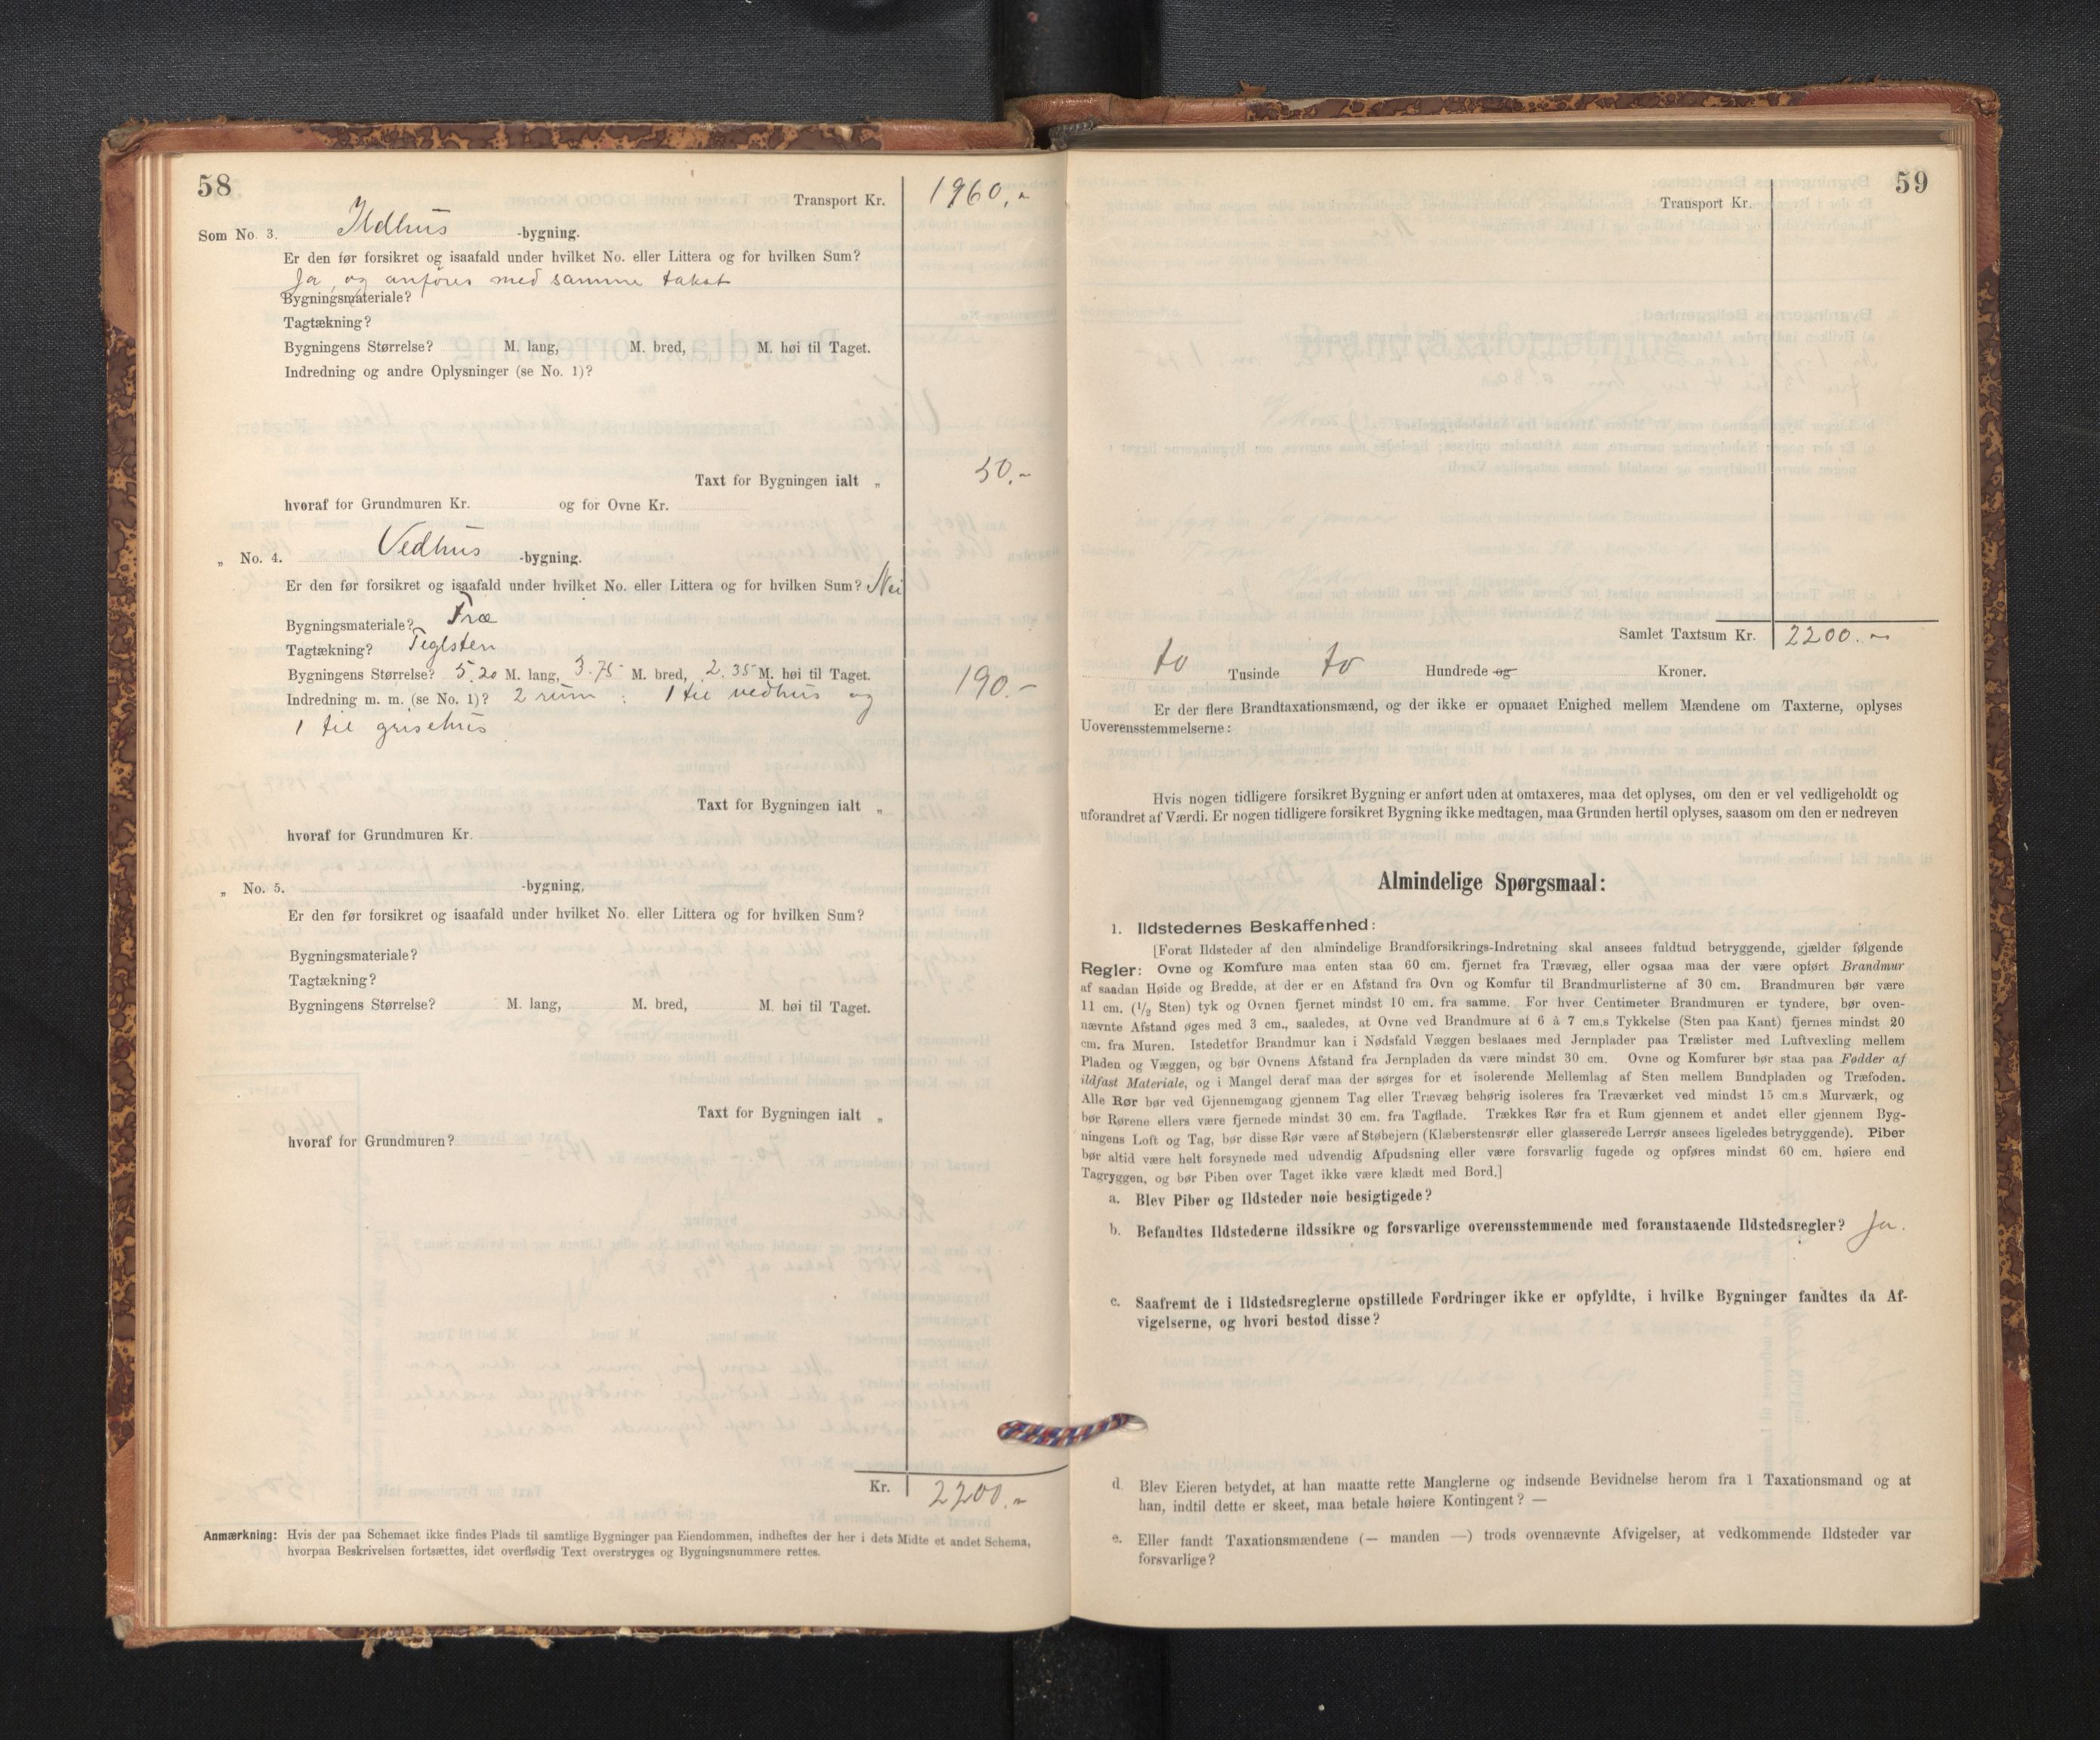 58
Transport Kr. 1960,-
Som No. 3. Ildhus -bygning.
Er den før forsikret og isaafald under hvilket No. eller Littera og for hvilken Sum?
Ja, og anføres med samme takst
Bygningsmateriale?
Tagtækning?
Bygningens Størrelse? M. lang, M. bred, M. høi til Taget.
Indredning og andre Oplysninger (se No. 1)?
Taxt for Bygningen ialt „ 50,-
hvoraf for Grundmuren Kr. og for Ovne Kr.
„ No. 4. Vedhus -bygning.
Er den før forsikret og isaafald under hvilket No. eller Littera og for hvilken Sum? Nei
Bygningsmateriale? Træ
Tagtækning? Teglsten
Bygningens Størrelse? 5.20 M. lang, 3.75 M. bred, 2.35 M. høi til Taget.
Indredning m. m. (se No. 1)? 2 rum : 1 til vedhus og 190.-
1 til grisehus
Taxt for Bygningen ialt „
hvoraf for Grundmuren Kr.
„ No. 5. -bygning.
Er den før forsikret og isaafald under hvilket No. eller Littera og for hvilken Sum?
Bygningsmateriale?
Tagtækning?
Bygningens Størrelse? M. lang, M. bred, M. høi til Taget.
Taxt for Bygningen ialt „
hvoraf for Grundmuren?
Kr. 2200.-
Anmærkning: Hvis der paa Schemaet ikke findes Plads til samtlige Bygninger paa Eiendommen, indheftes der her i dets Midte et andet Schema,
hvorpaa Beskrivelsen fortsættes, idet overflødig Text overstryges og Bygningsnummere rettes.
59
Transport Kr.
Samlet Taxtsum Kr. 2200.-
to Tusinde to Hundrede og Kroner.
Er der flere Brandtaxationsmænd, og der ikke er opnaaet Enighed mellem Mændene om Taxterne, oplyses
Uoverensstemmelserne:
Hvis nogen tidligere forsikret Bygning er anført uden at omtaxeres, maa det oplyses, om den er vel vedligeholdt og
uforandret af Værdi. Er nogen tidligere forsikret Bygning ikke medtagen, maa Grunden hertil oplyses, saasom om den er nedreven
Almindelige Spørgsmaal:
1. Ildstedernes Beskaffenhed:
[Forat Ildsteder af den almindelige Brandforsikrings-Indretning skal ansees fuldtud betryggende, gjælder følgende
Regler: Ovne og Komfure maa enten staa 60 cm. fjernet fra Trævæg, eller ogsaa maa der være opført Brandmur
af saadan Høide og Bredde, at der er en Afstand fra Ovn og Komfur til Brandmurlisterne af 30 cm. Brandmuren bør være
11 cm. (1/2 Sten) tyk og Ovnen fjernet mindst 10 cm. fra samme. For hver Centimeter Brandmuren er tyndere, bør oven-
nævnte Afstand øges med 3 cm., saaledes, at Ovne ved Brandmure af 6 à 7 cm.s Tykkelse (Sten paa Kant) fjernes mindst 20
cm. fra Muren. Istedetfor Brandmur kan i Nødsfald Væggen beslaaes med Jernplader paa Trælister med Luftvexling mellem
Pladen og Væggen, og bør Ovnens Afstand fra Jernpladen da være mindst 30 cm. Ovne og Komfurer bør staa paa Fødder af
ildfast Materiale, og i Mangel deraf maa der sørges for et isolerende Mellemlag af Sten mellem Bundpladen og Træfoden.
Alle Rør bør ved Gjennemgang gjennem Tag eller Trævæg behørig isoleres fra Træværket ved mindst 15 cm.s Murværk, og
bør Rørene ellers være fjernede mindst 30 cm. fra Tagflade. Trækkes Rør fra et Rum gjennem et andet eller gjennem Byg-
ningens Loft og Tag, bør disse Rør være af Støbejern (Klæberstensrør eller glasserede Lerrør ansees ligeledes betryggende). Piber
bør altid være helt forsynede med udvendig Afpudsning eller være forsvarlig fugede og opføres mindst 60 cm. høiere end
Tagryggen, og bør Piben over Taget ikke være klædt med Bord.]
a. Blev Piber og Ildsteder nøie besigtigede?
b. Befandtes Ildstederne ildssikre og forsvarlige overensstemmende med foranstaaende Ildstedsregler? Ja.
c. Saafremt de i Ildstedsreglerne opstillede Fordringer ikke er opfyldte, i hvilke Bygninger fandtes da Af-
vigelserne, og hvori bestod disse?
d. Blev Eieren betydet, at han maatte rette Manglerne og indsende Bevidnelse herom fra 1 Taxationsmand og at
han, indtil dette er skeet, maa betale høiere Kontingent? —
e. Eller fandt Taxationsmændene (— manden —) trods ovennævnte Afvigelser, at vedkommende Ildsteder var
forsvarlige?